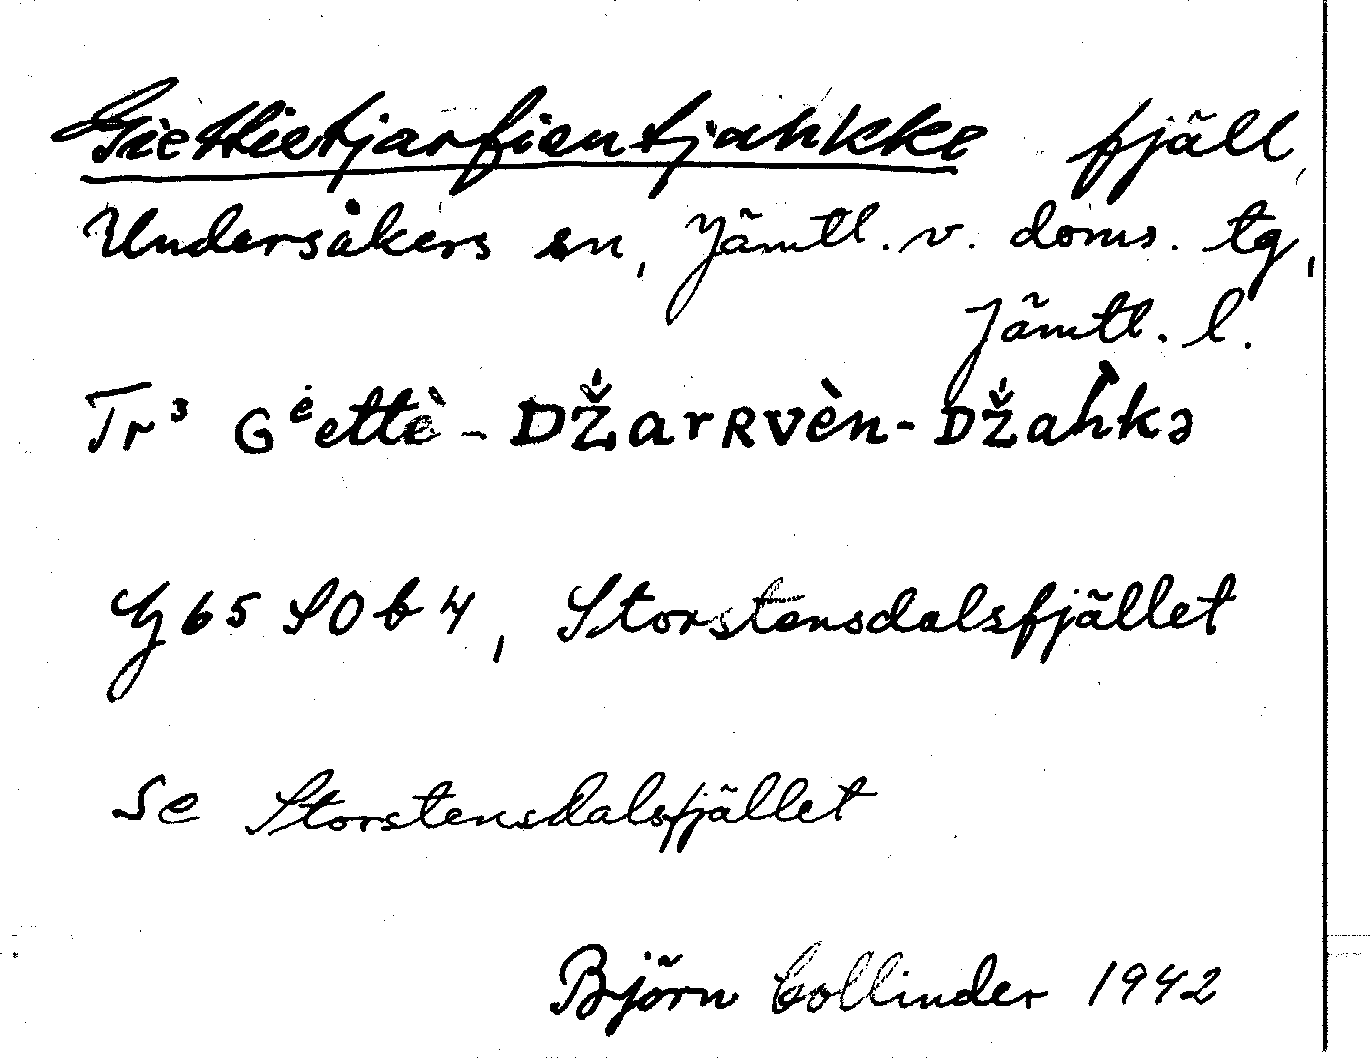 Giettietjarfientjahkke fjäll,
Undersåkers sn, Jämtl. v. doms. tg,
Jämtl. l.
Tr³ Gėettè-DŽarRvèn-DŽahkə
G 65 SO b 4, Storstensdalsfjället
Se Storstensdalsfjället
Björn Collinder 1942